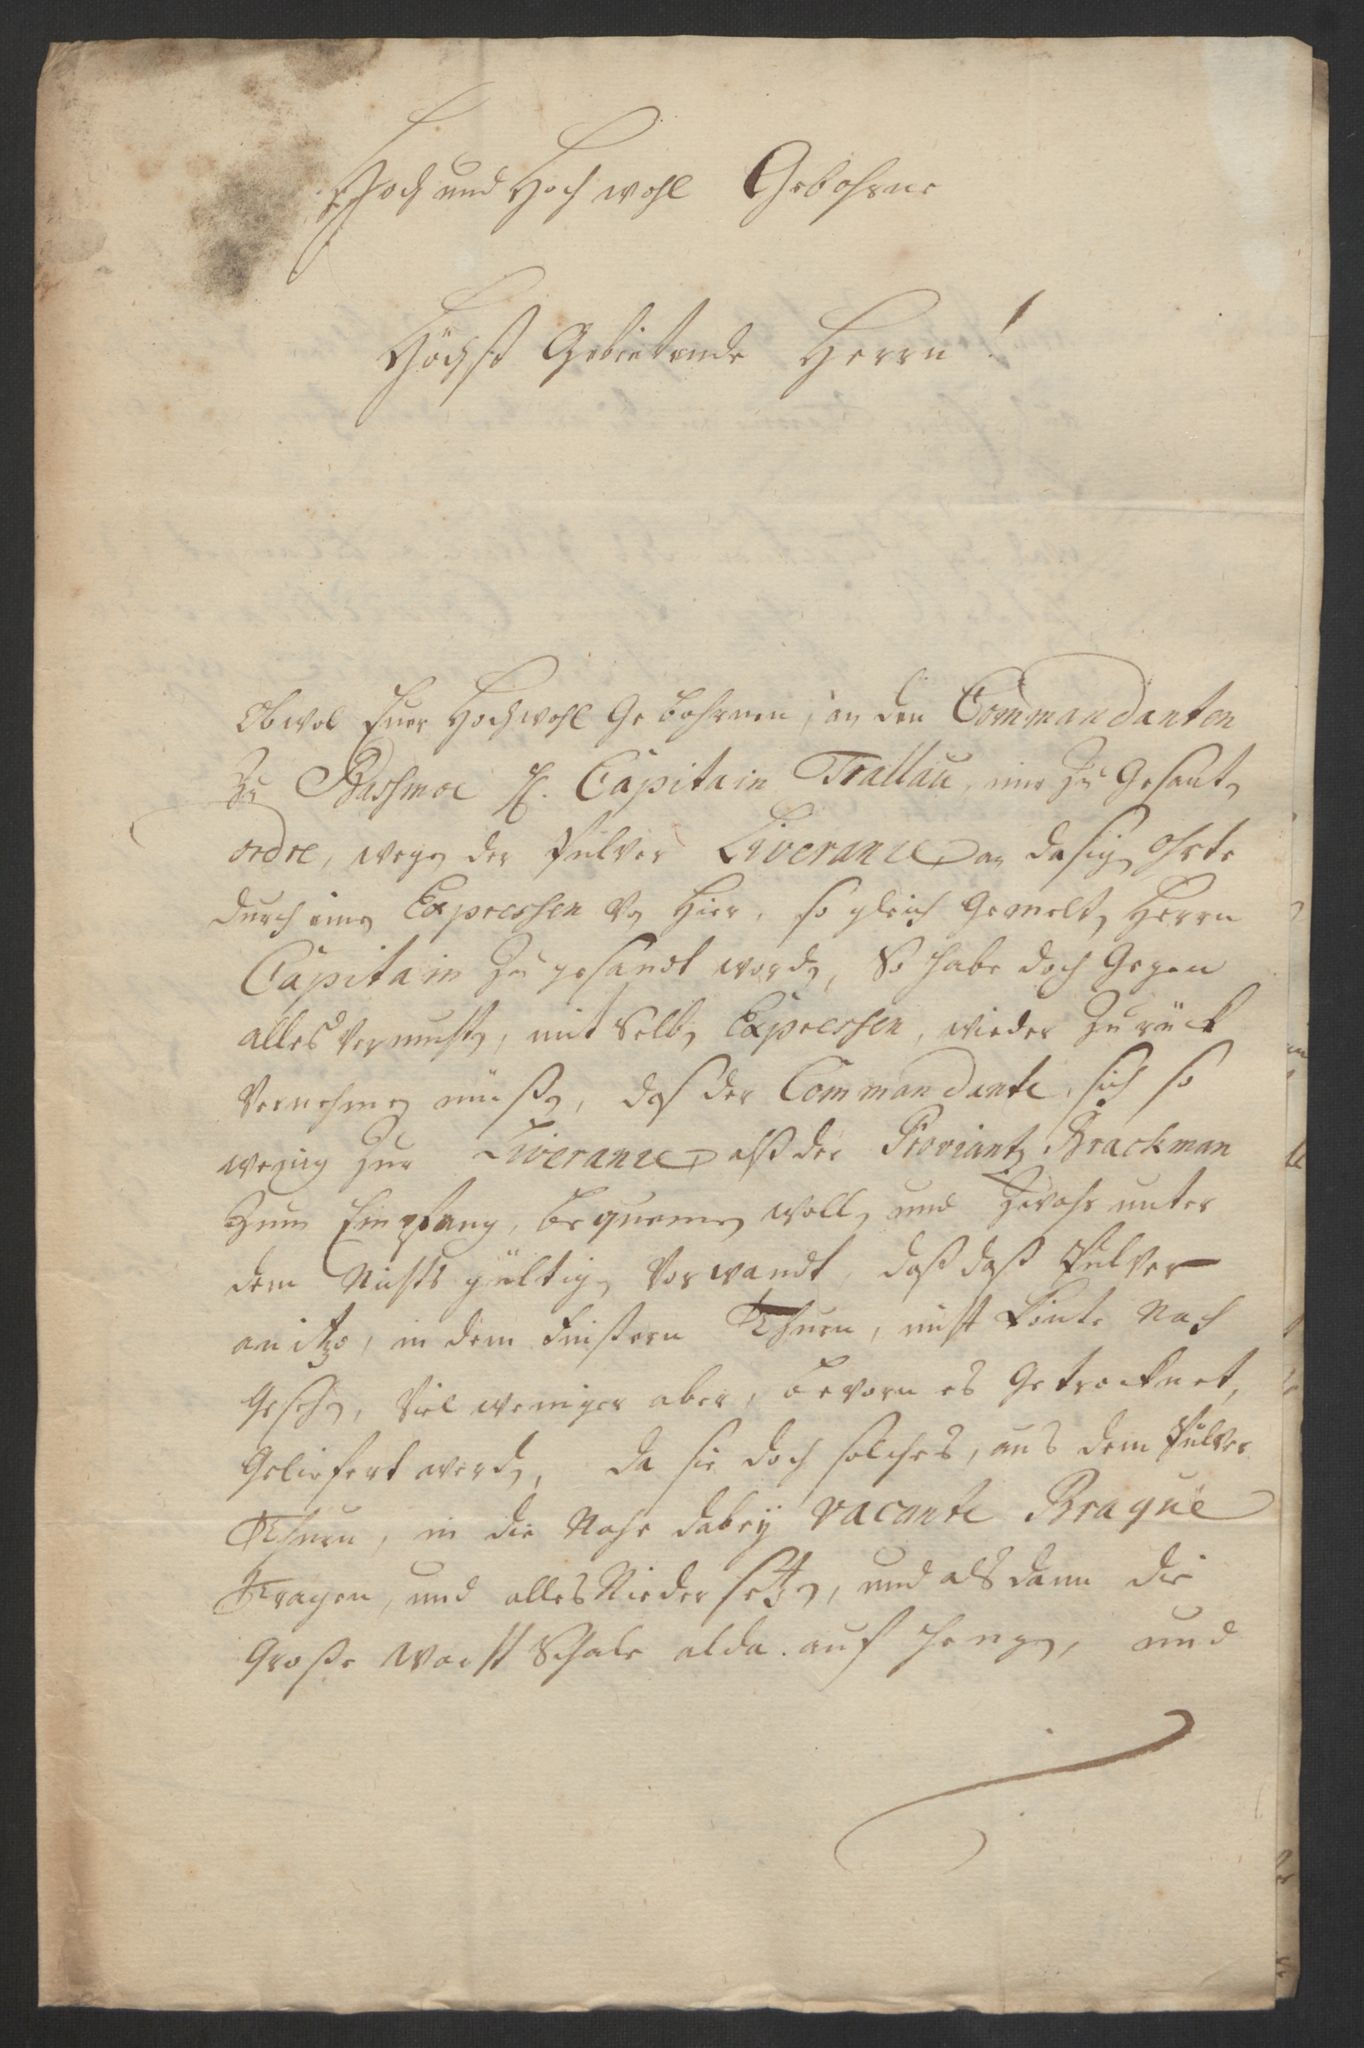 Hoch und Hoch wohl Gebohrne
Höchst Gebietende Herrn!
Obwol Euer Hochwohl Gebohrnen, an den Commandanten
zu Basmoe H. Capitain Trallau, mir zu Gesanten
ordre, wegen der Pulver Liverance an dasigen ohrte
durch einen Expressen von hier, so gleich Gemelten Herrn
Capitain zu gesandt worden, So habe doch Gegen
alles Vermuthen, mit Selben Expressen, wieder zurück
Vernehmen müßen, das der Commandante, sich so
wenig zur Liverance alß der Proviantz Brackman
zum Empfang, bequemen wollen und zwahr unter
dem Nichts gültigen Vorwandt, daß daß Pulver
anitzo, in dem finstern Thurn, nicht könte Nach
Gesehen, Viel weniger aber, bevorn es Getrocknet,
Geliefert werden, da sie doch solches, aus dem Pulver
Thurn, in die Nahe dabey vacante Braque
Tragen, und alles Nieder setzen, und als dann die
Große Wacht Schale alda auf hengen, und